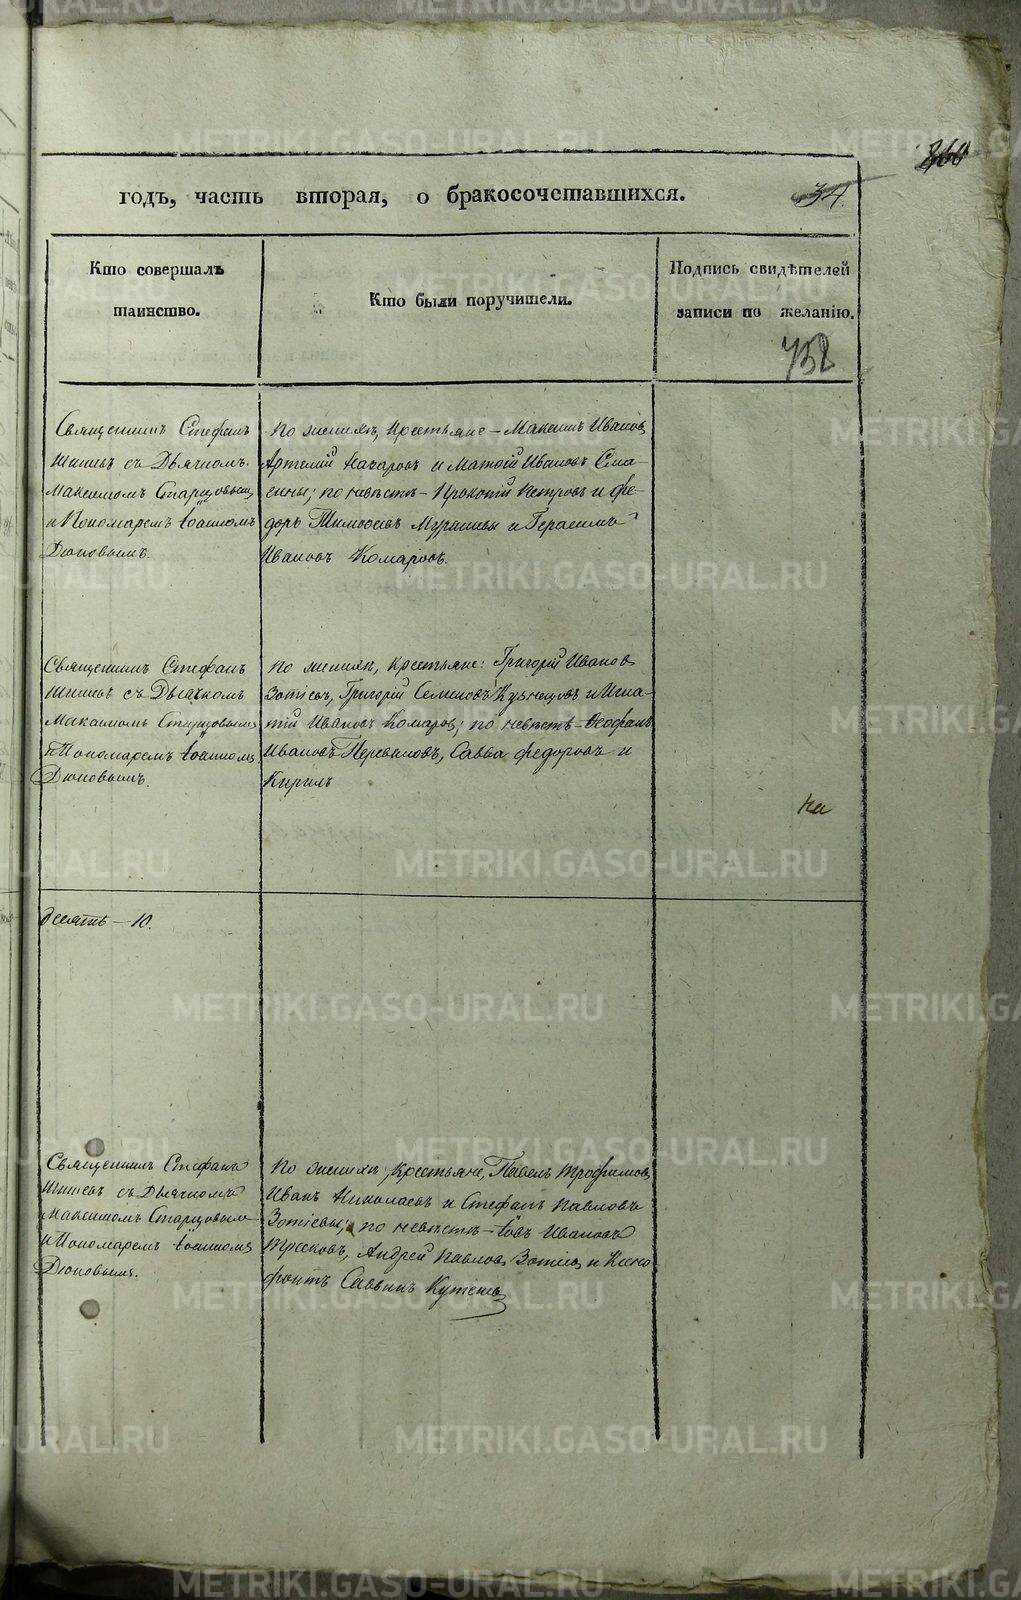 360
годъ, часть вторая, о бракосочетавшихся.
34.
Кто совершалъ
таинство.
Кто были поручители.
Подпись свидѣтелей
записи по желанію.
758
Священникъ Стефанъ
съ Дьячкомъ
Максимомъ Старцовымъ
и Пономаремъ Іоанномъ
Дюповымъ.
По женихѣ, Крестьяне – Максимъ Ивановъ,
Артемій Назаровъ и Матѳій Ивановъ
по невѣстѣ – Прокопій Петровъ и Фе-
доръ Тимоѳеевъ и Герасимъ
Ивановъ Комаровъ.
Священникъ Стефанъ
съ Дьячкомъ
Максимомъ Старцовымъ
и Пономаремъ Іоанномъ
Дюповымъ.
По женихѣ, Крестьяне: Григорій Ивановъ
Зотѣевъ, Григорій Семеновъ Кузнецовъ и Игна-
тій Ивановъ Комаровъ; по невѣстѣ – Ѳеофанъ
Ивановъ Савва Федоровъ и
Кирилъ
На
десять – 10.
Священникъ Стефанъ
съ Дьячкомъ
Максимомъ Старцовымъ
и Пономаремъ Іоанномъ
Дюповымъ.
По женихѣ, Крестьяне, Павелъ Трофимовъ,
Иванъ Николаевъ и Стефанъ Павловъ
Зотѣевы; по невѣстѣ – Іовъ Ивановъ
Андрей Павловъ Зотѣевъ и Ксено-
фонтъ Саввинъ
METRIKI.GASO-URAL.RU